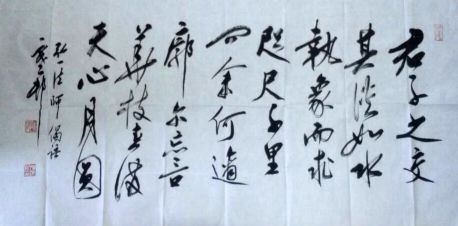 君子之交
其淡如水
執象而求
咫尺千里
问余何適
廓尔忘言
華枝春满
天心月圓
弘一法师偈语